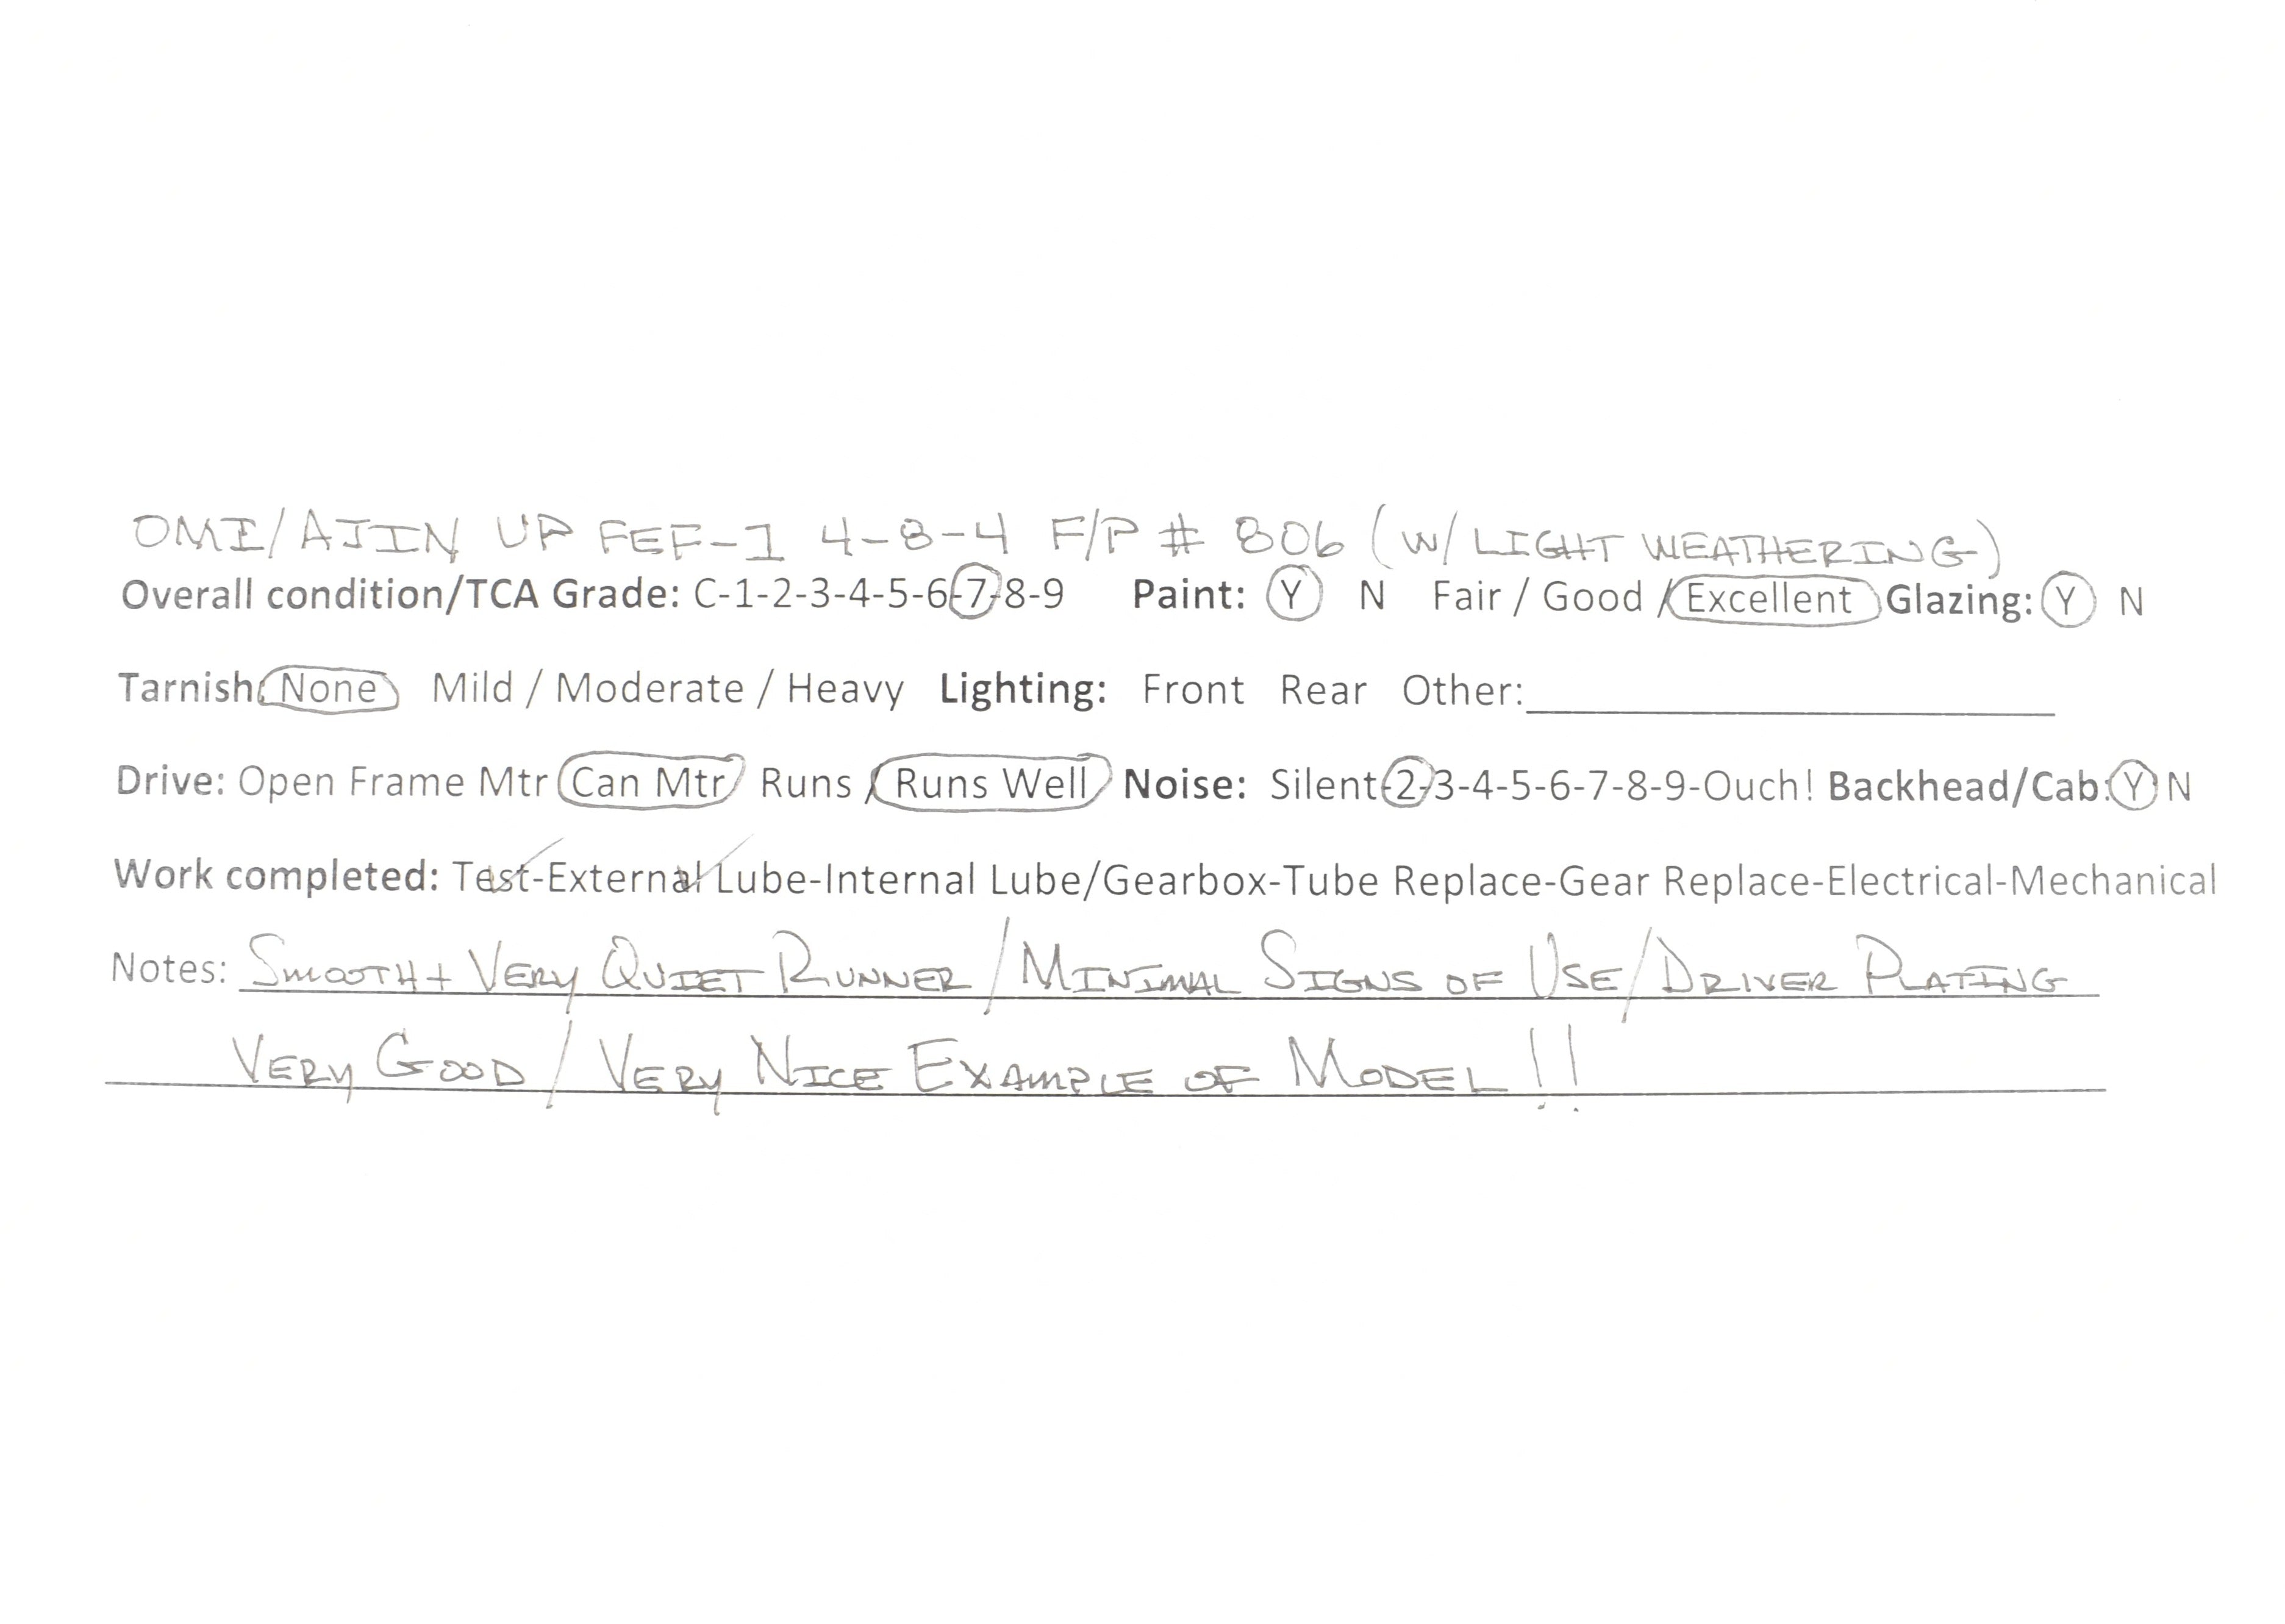 OMI/AJIN UP FEF-1 4-8-4 F/P # 806 (W/ LIGHT WEATHERING)
Overall condition/TCA Grade: C-1-2-3-4-5-6-7-8-9 Paint: Y N Fair / Good / Excellent Glazing: Y N
Tarnish: None Mild / Moderate / Heavy Lighting: Front Rear Other:
Drive: Open Frame Mtr Can Mtr Runs / Runs Well Noise: Silent-2-3-4-5-6-7-8-9-Ouch! Backhead/Cab: Y N
Work completed: Test-External Lube-Internal Lube/Gearbox-Tube Replace-Gear Replace-Electrical-Mechanical
Notes: SMOOTH + VERY QUIET RUNNER / MINIMAL SIGNS OF USE / DRIVER PLATING
VERY GOOD / VERY NICE EXAMPLE OF MODEL !!